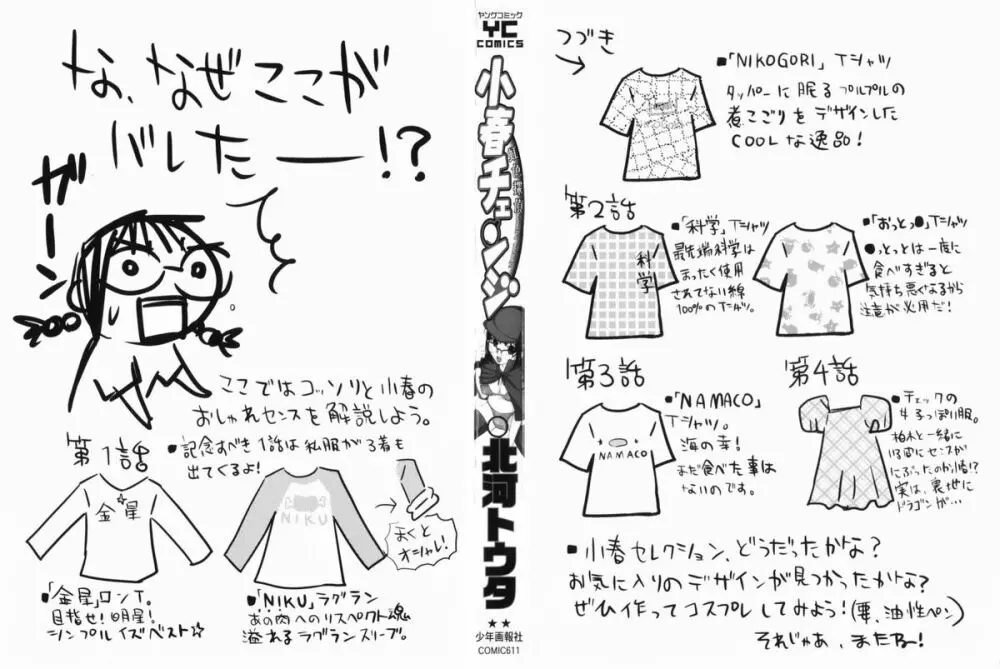 な、なぜここが
バレたーー!?
ガーン
ここではコッソリと小春の
おしゃれセンスを解説しよう。
第1話
■記念すべき1話は私服が3着も
出てくるよ!
金星
NIKU
まくと
オシャレ!
■「金星」ロンT。
目指せ!明星!
シンプルイズベスト☆
■「NIKU」ラグラン
あの肉へのリスペクト魂
溢れるラグランスリーブ。
ヤングコミック
YC
COMICS
小春チェンジ
北河トウタ
★★
少年画報社
COMIC611
つづき
■「NIKOGORI」Tシャツ
タッパーに眠るプルプルの
煮こごりをデザインした
COOLな逸品!
第2話
科学
■「科学」Tシャツ
最先端科学は
まったく使用
されてない綿
100%のTシャツ。
■「おっとっ●」Tシャツ
●っとっとは一度に
食べすぎると
気持ち悪くなるから
注意が必用だ!
第3話
NAMACO
■「NAMACO」
Tシャツ。
海の幸!
まだ食べた事は
ないのです。
第4話
■チェックの
女子っぽい服。
柏木と一緒に
実は、裏地に
ドラゴンが…
■小春セレクション、どうだったかな?
お気に入りのデザインが見つかったかな?
ぜひ作ってコスプレしてみよう!(要、油性ペン)
それじゃあ、またねー!